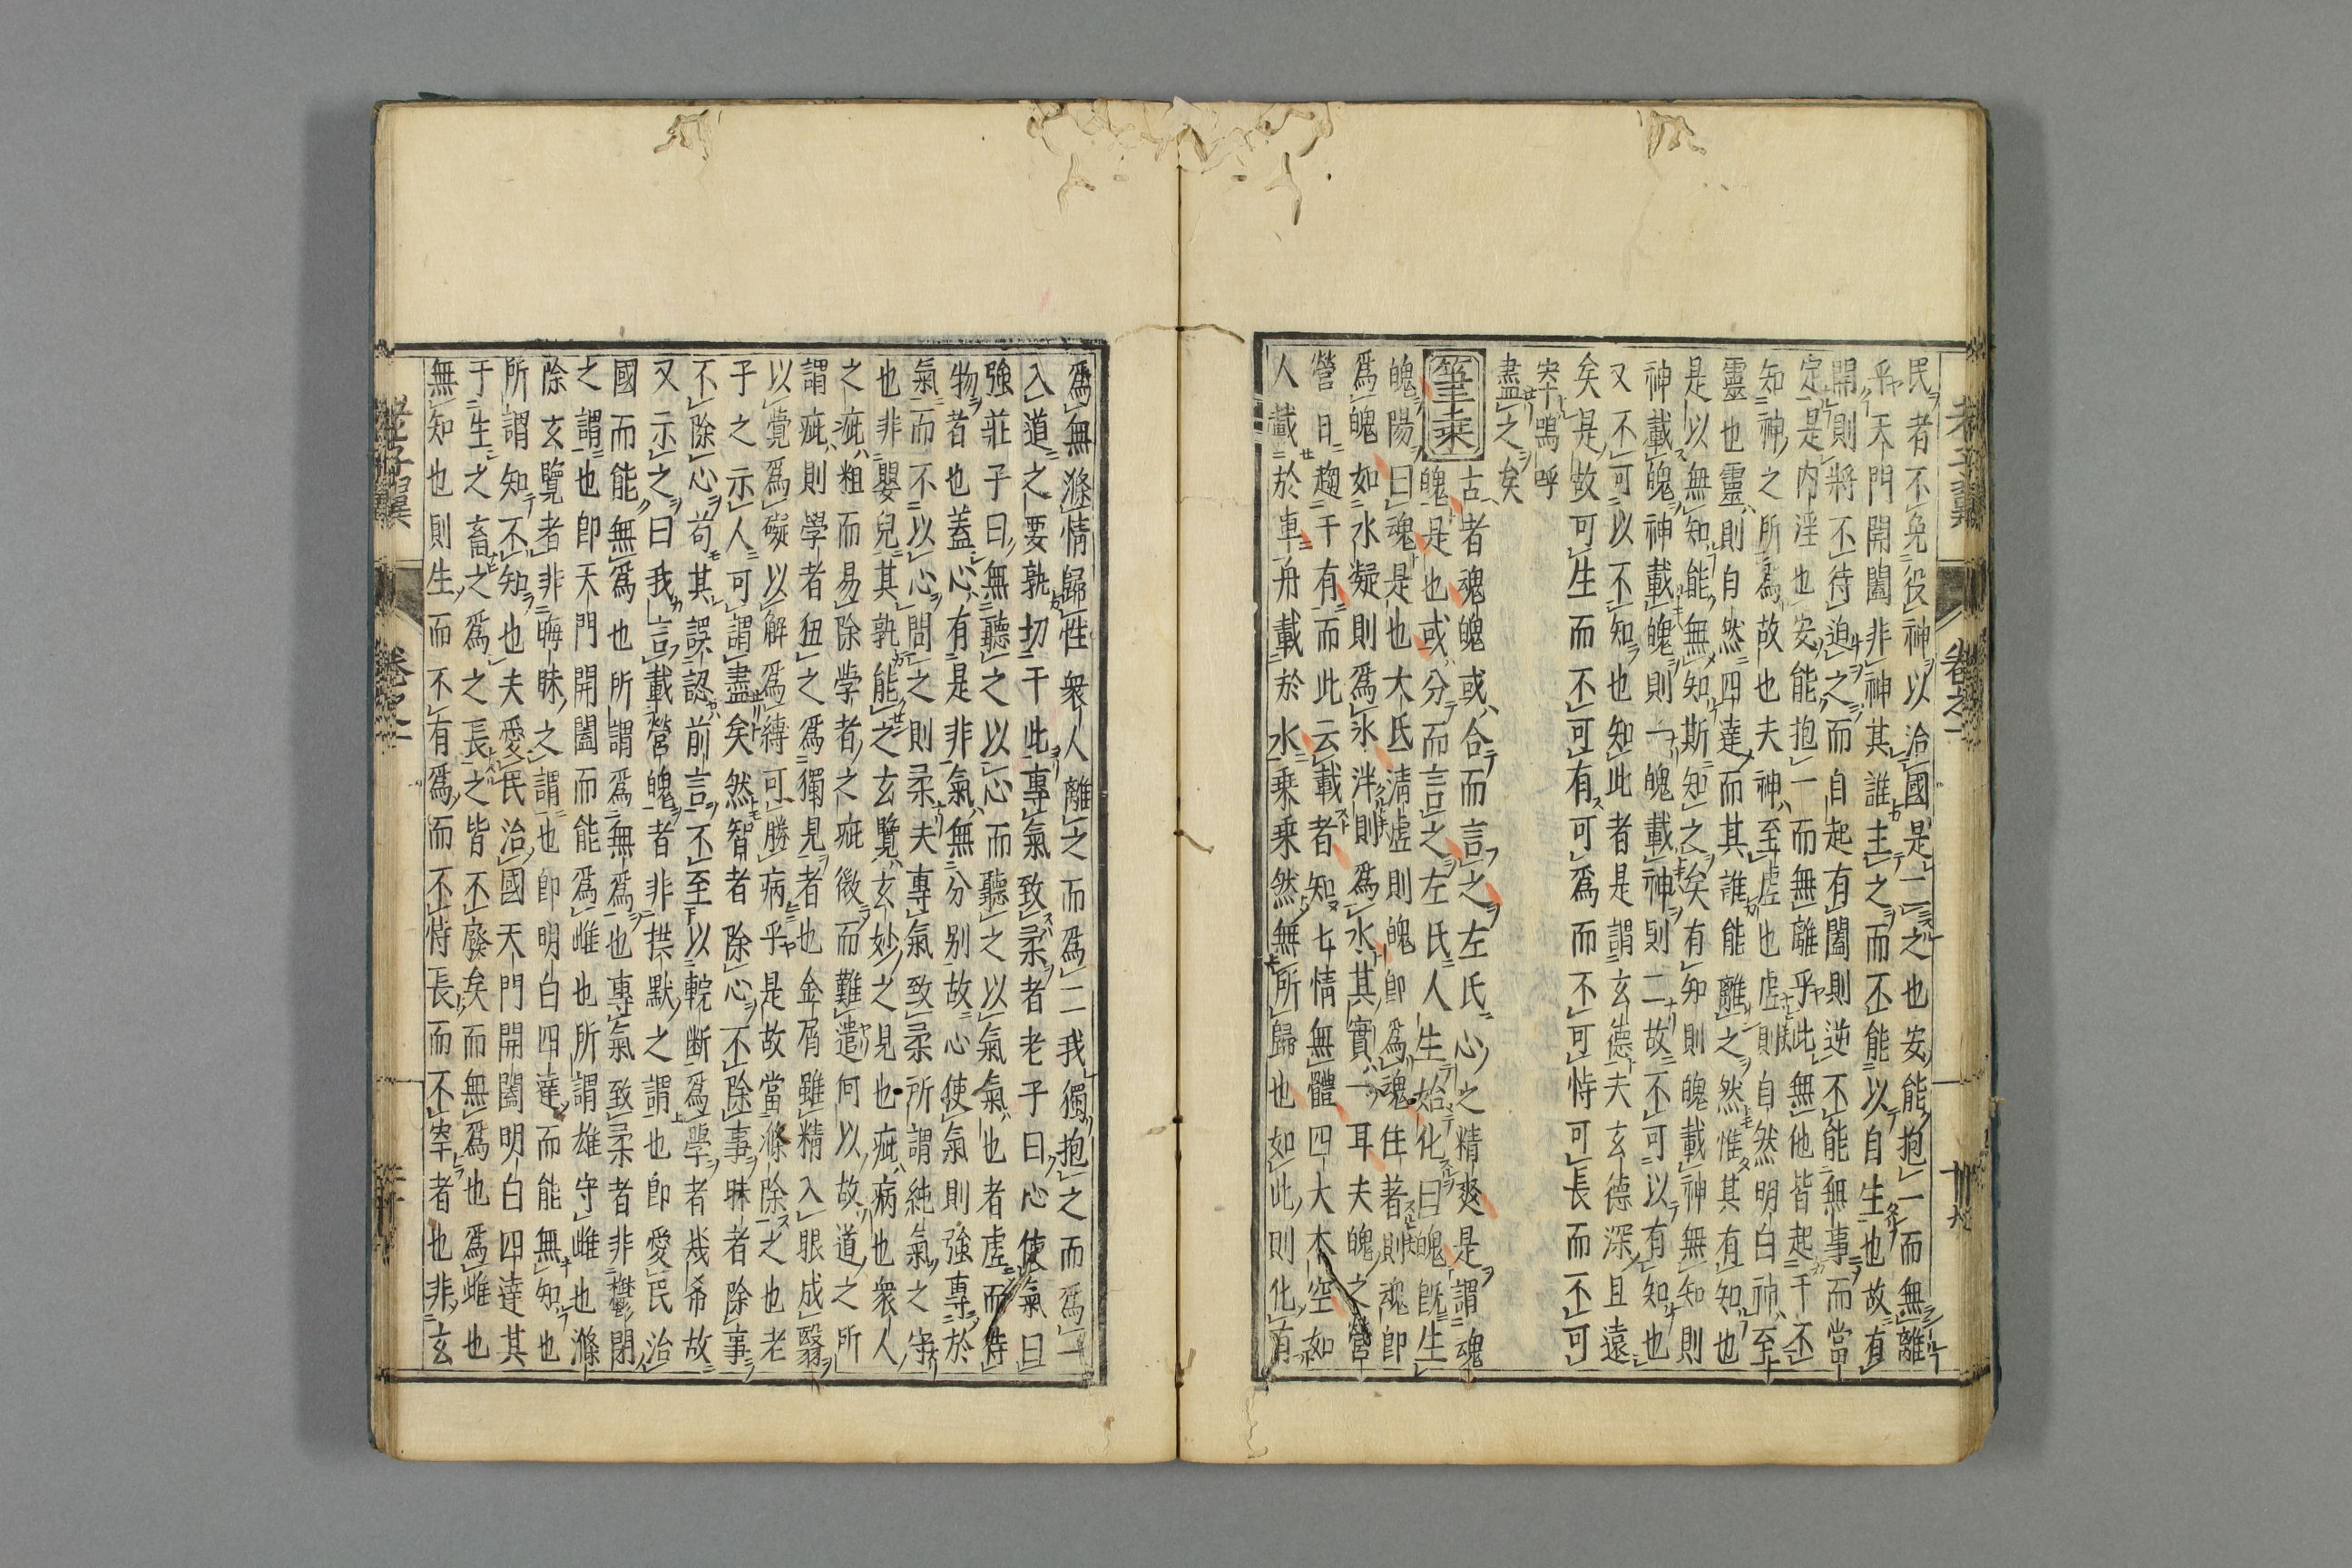 民者不免役神以治國是二之也安能抱一而無離
乎天門開闔非神其誰主之而不能以自生也故有
開則將不待迫之而自起有闔則逆不能無事而當
定是内淫也安能抱一而無離乎此無他皆起于不
知神之所為故也夫神至虛也虛則自然明白神至
靈也靈則自然四達而其誰能離之然惟其有知也
是以無知能無知斯知之矣有知則魄載神無知則
神載魄神載魄則一魄載神則二故不可以有知也
又不可以不知也知此者是謂玄德夫玄德深且遠
矣是故可生而不可有可為而不可恃可長而不可
宰嗚呼
盡之矣
筆乘
古者魂魄或合而言之左氏心之精爽是謂魂
魄是也或分而言之左氏人生始化曰魄既生
魄陽曰魂是也大氐清虛則魄即為魂住著則魂即
為魄如水凝則為氷泮則為水其實一耳夫魄之營
營日趨于有而此云載者知七情無體四大本空如
人載於車舟載於水乘乘然無所歸也如此則化有
為無滌情歸性衆人離之而為二我獨抱之而為一
入道之要孰切于此專氣致柔者老子曰心使氣曰
強莊子曰無聽之以心而聽之以氣氣也者虛而待
物者也蓋心有是非氣無分別故心使氣則強專於
氣而不以心間之則柔夫專氣致柔所謂純氣之守
也非嬰兒其孰能之玄覽玄妙之見也疵病也衆人
之疵粗而易除學者之疵微而難遣何以故道之所
謂疵則學者狃之為獨見者也金屑雖精入眼成翳
以覺為礙以解為縛可勝病乎是故當滌除之也老
子之示人可謂盡矣然智者除心不除事昧者除事
不除心苟其誤認前言不至以輐断為學者幾希故
又示之曰我言載營魄者非拱默之謂也即愛民治
國而能無為也所謂為無為也專氣致柔者非鬱閉
之謂也即天門開闔而能為雌也所謂雄守雌也滌
除玄覽者非晦昧之謂也即明白四達而能無知也
所謂知不知也夫愛民治國天門開闔明白四達其
于生之畜之為之長之皆不廢矣而無為也為雌也
無知也則生而不有為而不恃長而不宰者也非玄
老子翼
卷之一